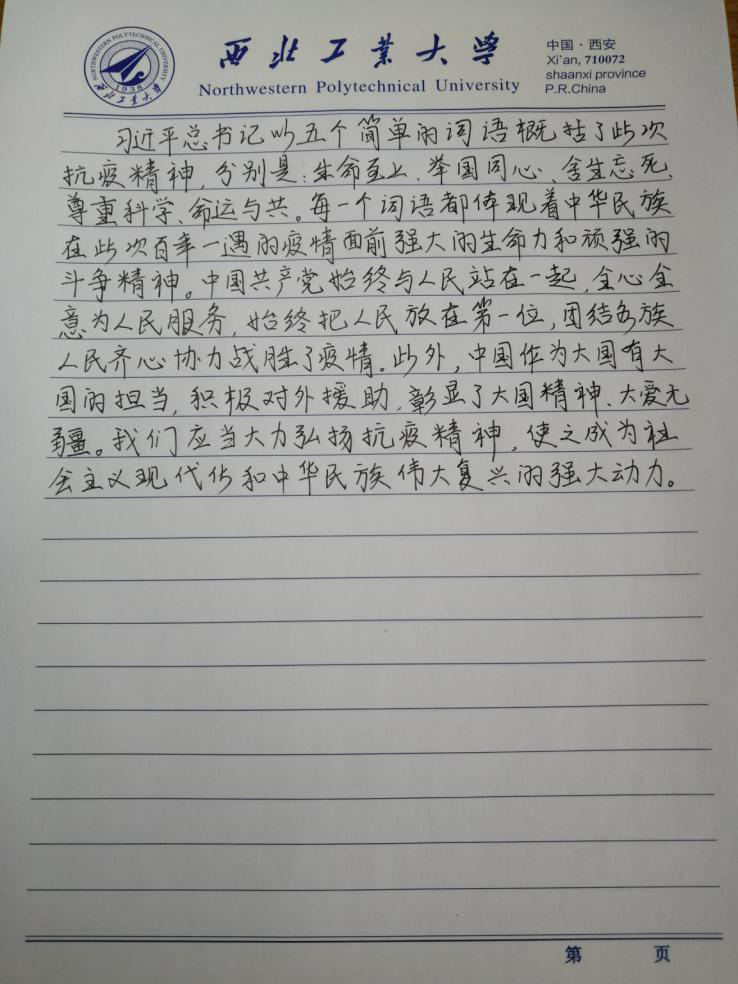 西北工业大学
Northwestern Polytechnical University
中国·西安
Xi'an, 710072
shaanxi province
P.R.China
NORTHWESTERN POLYTECHNICAL UNIVERSITY
1938
西北工业大学
习近平总书记以五个简单的词语概括了此次
抗疫精神,分别是:生命至上、举国同心、舍生忘死、
尊重科学、命运与共。每一个词语都体现着中华民族
在此次百年一遇的疫情面前强大的生命力和顽强的
斗争精神。中国共产党始终与人民站在一起,全心全
意为人民服务,始终把人民放在第一位,团结各族
人民齐心协力战胜了疫情。此外,中国作为大国有大
国的担当,积极对外援助,彰显了大国精神、大爱无
疆。我们应当大力弘扬抗疫精神,使之成为社
会主义现代化和中华民族伟大复兴的强大动力。
第 页